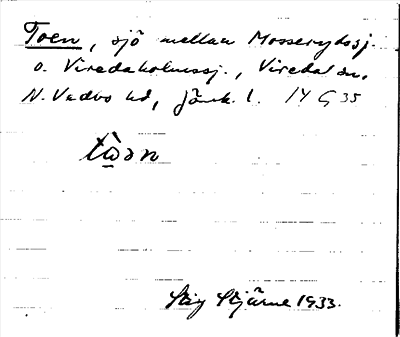 Toen, sjö mellan Mosserydssj.
o. Viredaholmssj., Vireda sn,
N. Vedbo hd, Jönk. l. 14 G 35
tὼən
Stig Stjärne 1933.